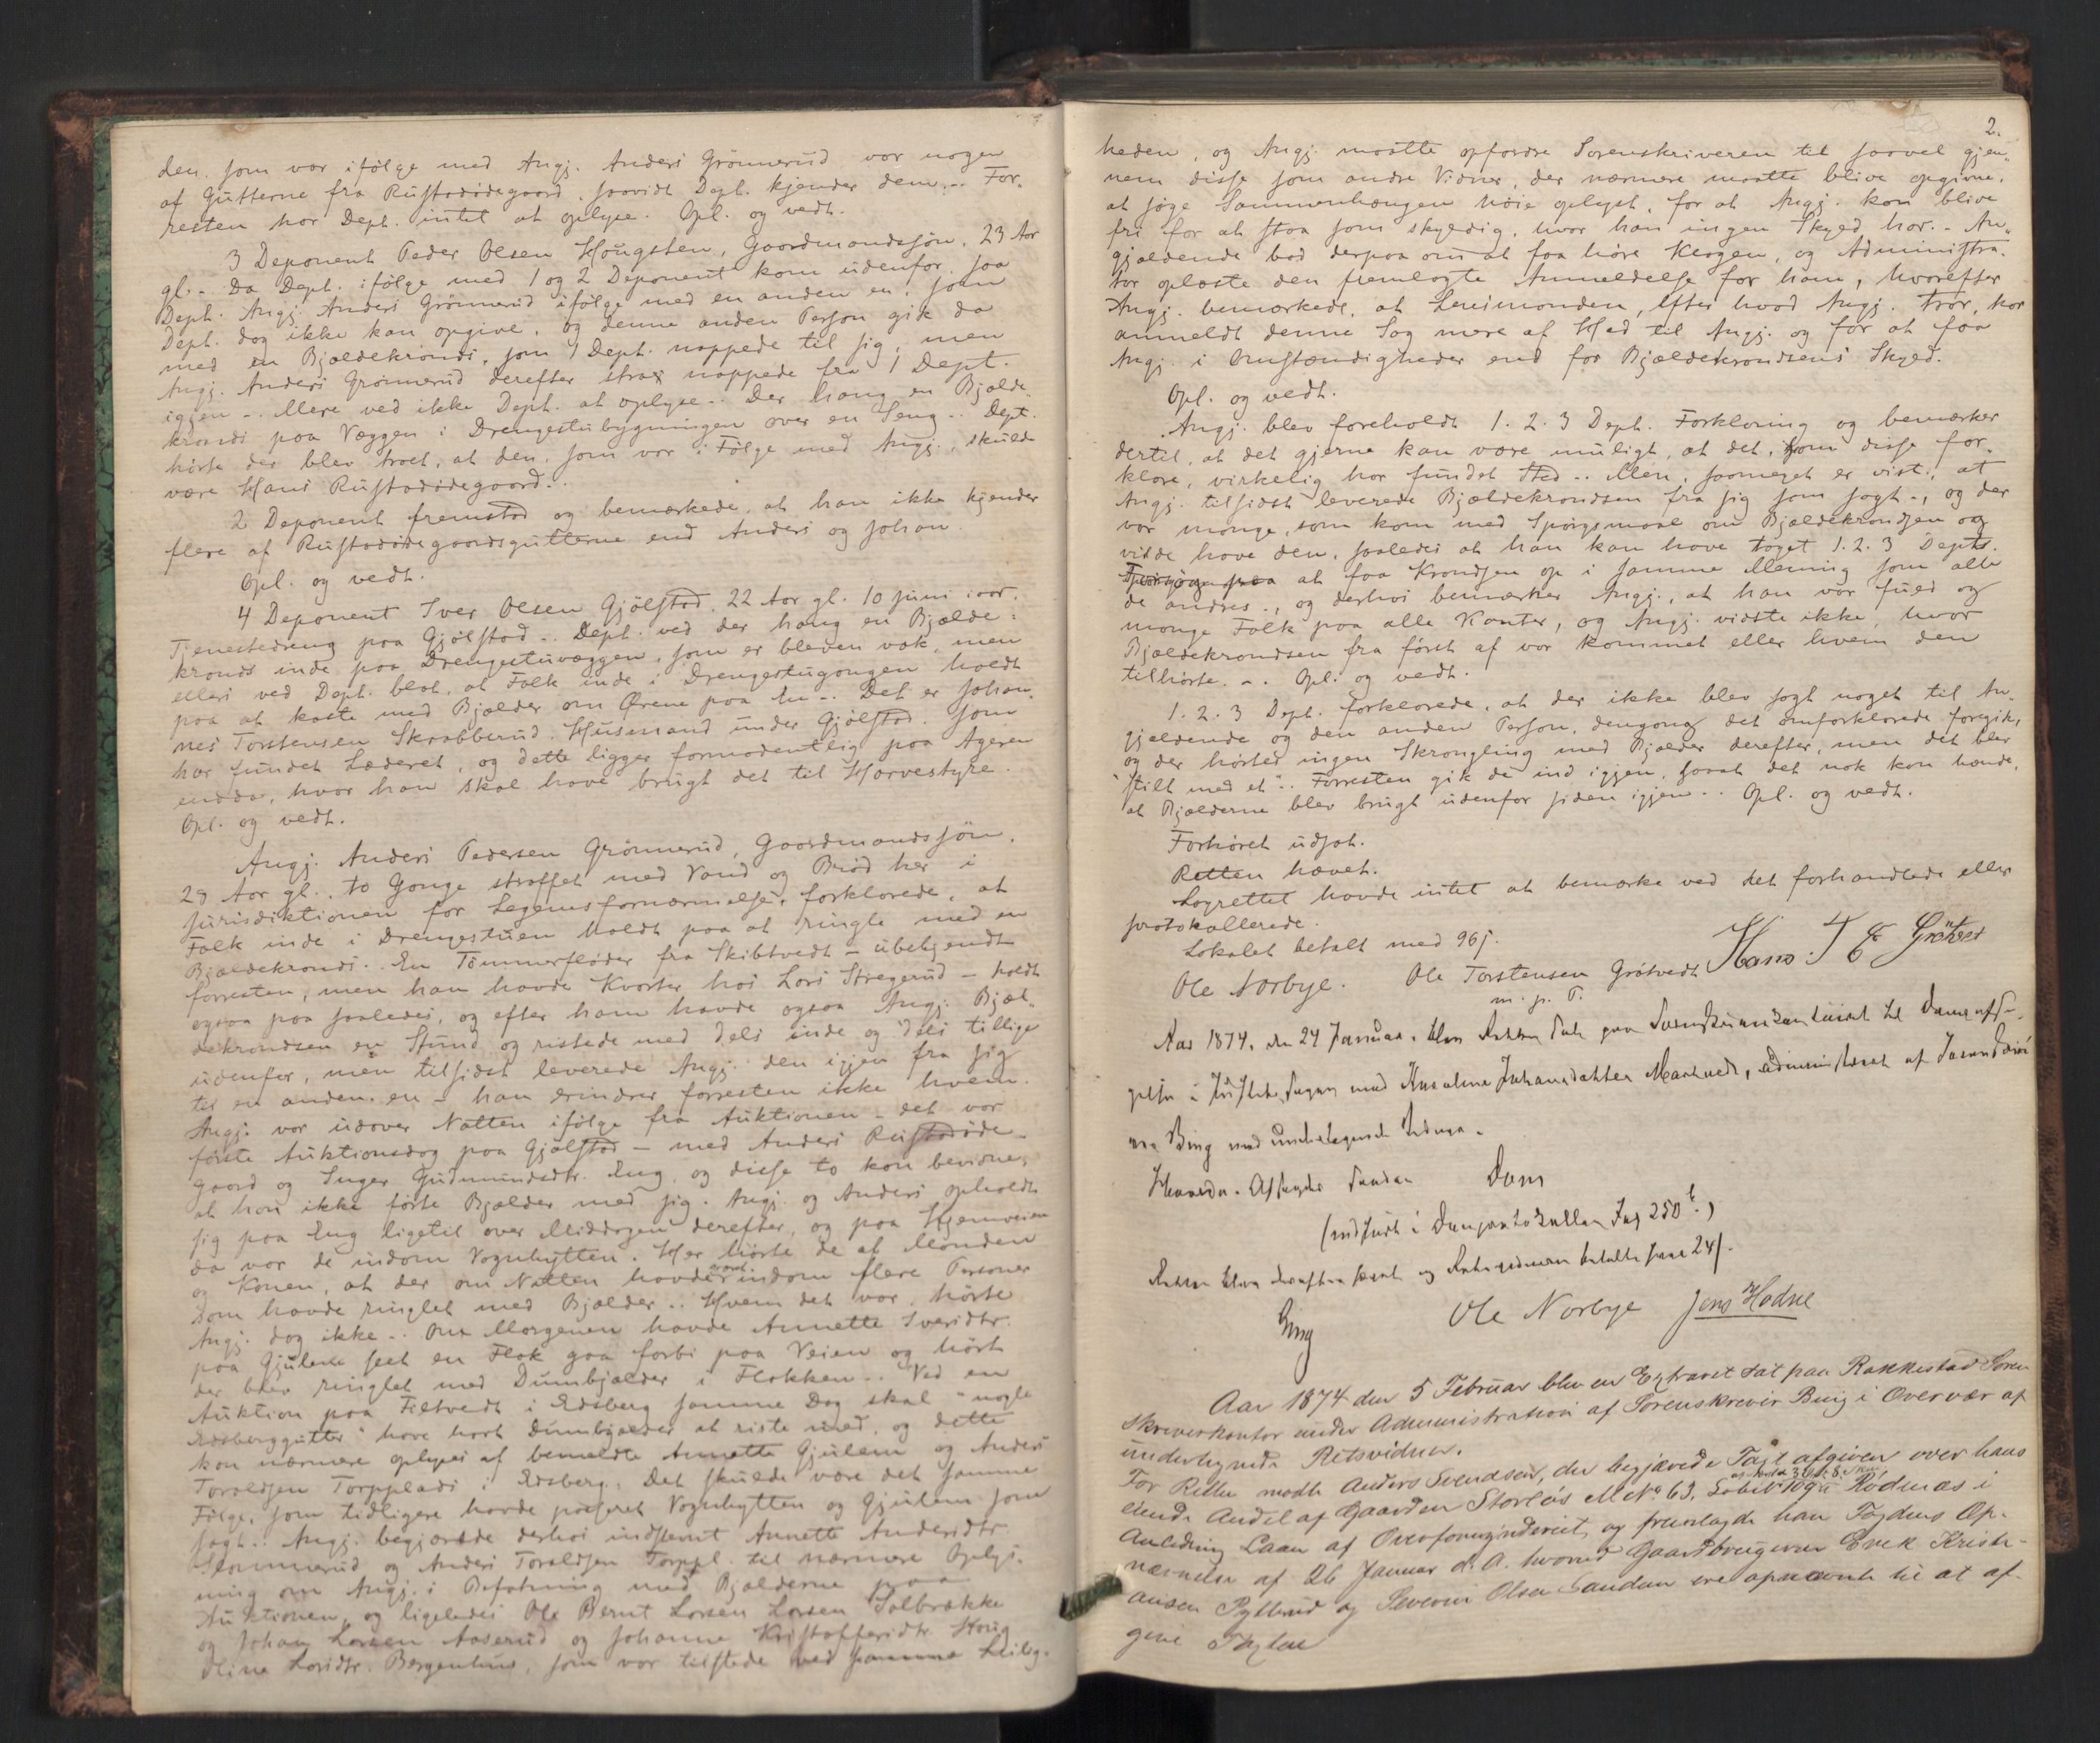 den, som var ifölge med Angj. Anders Grönnerud var nogen
af Gutterne fra Rustadödegaard, saavidt Dept. kjender dem. - For-
resten har Dept. intet at oplyse. Opl. og vedt.
3 Deponent Peder Olsen Hougsten, Gaardmandssön, 23 Aar
gl. - Da Dept. ifölge med 1 og 2 Deponent kom udenfor, saa
Dept. Angj. Anders Grönnerud ifölge med en anden en, som
Dept. dog ikke kan opgive, og denne anden Person gik da
med en Bjældekrands, som 1 Dept. nappede til sig, men
Angj. Anders Grönnerud derefter strax nappede fra 1 Dept.
igjen - . Mere ved ikke Dept. at oplyse - . Der hang en Bjælde-
krands paa Væggen i Drengestubygningen over en Seng - . Dept.
hörte der blev troet, at den, som var i Fölge med Angj., skulde
være Hans Rustadödegaard. -
2 Deponent fremstod og bemærkede, at han ikke kjender
flere af Rustadödegaardsgutterne end Anders og Johan.
Opl. og vedt.
4 Deponent Iver Olsen Gjölstad, 22 Aar gl. 10 Juni iaar.
Tjenestedreng paa Gjölstad - . Dept. ved der hang en Bjælde-
krands inde paa Drengestuvæggen, som er bleven væk, men
ellers ved Dept. blot, at Folk inde i Drengestugangen holdt
paa at kaste med Bjælder om Ørene paa En - . Det er Johan-
nes Torstensen Skrabberud, Husmand under Gjölstad, som
har fundet Læderet, og dette ligger formodentlig paa Ageren
endda, hvor han skal have brugt det til Harvestyre.
Opl. og vedt.
Angj. Anders Pedersen Grönnerud, Gaardmandssön,
28 Aar gl., to Gange straffet med Vand og Bröd her i
Jurisdiktionen for Legemsfornærmelse, forklarede, at
Folk inde i Drengestuen holdt paa at ringle med en
Bjældekrands. En Tömmerflöder fra Skibtvedt - ubekjendt
forresten, men han havde Kvarter hos Lars Stregerud - holdt
ogsaa paa saaledes, og efter ham havde ogsaa Angj. Bjæl-
dekrandsen en Stund og ristede med dels inde og dels tillige
udenfor, men tilsidst leverede Angj. den igjen fra sig
til en anden en - han erindrer forresten ikke hvem.
Angj. var udover Natten ifölge fra Auktionen - det var
förste Auktionsdag paa Gjölstad - med Anders Rustadöde-
gaard og Inger Gudmundsdtr. Eng, og disse to kan bevidne,
at han ikke förte Bjælder med sig. Angj. og Anders opholdt
sig paa Eng ligetil over Middagen derefter, og paa Hjemveien
da var de indom Vognhytten. Her hörte de af Manden
og Konen, at der om Natten havde været indom flere Personer
som havde ringlet med Bjælder - . Hvem det var, hörte
Angj. dog ikke - . Om Morgenen havde Annette Iversdtr.
paa Gjulem seet en Flok gaa forbi paa Veien og hört
der blev ringlet med Dumbjælder i Flokken - . Ved en
Auktion paa Filtvedt i Edsberg samme Dag skal "nogle
Edsberggutter" have havt Dumbjælder at riste med, og dette
kan nærmere oplyses af bemeldte Annette Gjulem og Anders
Toraldsen Torpplads i Edsberg. Det skulde være det samme
Fölge, som tidligere havde passeret Vognhytten og Gjulem som
sagt. - Angj. begjærede derhos indstevnt Annette Andersdtr.
og Anders Toraldsen Torppl. til nærmere Oplys-
ning om Angj.s Befatning med Bjælderne paa
Auktionen, og ligeledes Ole Bernt Larsen Larsen Solbrække
og Johan Larsen Aaserud og Johanne Kristoffersdtr. Houg
Oline Larsdtr. Bergenhus, som var tilstede ved samme Leilig-
2.
heden, og Angj. maatte opfordre Sorenskriveren til saavel gjen-
nem disse som andre Vidner, der nærmere maatte blive opgivne,
at söge Sammenhængen nöie oplyst, for at Angj. kan blive
fri for at staa som skyldig, hvor han ingen Skyld har. - An-
gjældende bad derpaa om at faa höre Klagen, og Administra-
tor oplæste den fremlagte Anmeldelse for ham, hvorefter
Angj. bemærkede, at Lensmanden, efter hvad Angj. tror, har
anmeldt denne Sag mere af Had til Angj. og for at faa
Angj. i Omstændigheder end for Bjældekrandsens Skyld.
Opl. og vedt.
Angj. blev foreholdt 1. 2. 3 Dept. Forklaring og bemærker
dertil, at det gjerne kan være muligt, at det, som disse for-
klare, virkelig har fundet Sted - . Men saameget er vist, at
Angj. tilsidst leverede Bjældekrandsen fra sig som sagt -, og der
var mange, som kom med Spörgsmaal om Bjældekrandsen og
vilde have den, saaledes at han kan have taget 1. 2. 3 Depts.
Forsög paa at faa Krandsen op i samme Mening som alle
de andres -, og derhos bemærker Angj., at han var fuld og
mange Folk paa alle Kanter, og Angj. vidste ikke, hvor
Bjældekrandsen fra först af var kommet eller hvem den
tilhörte. - . Opl. og vedt.
1. 2. 3 Dept. forklarede, at der ikke blev sagt noget til An-
gjældende og den anden Person, dengang det omforklarede foregik,
og der hörtes ingen Skrangling med Bjælder derefter, men det blev
"stilt med et" - . Forresten gik de ind igjen, saaat det nok kan hænde,
at Bjælderne blev brugt udenfor siden igjen - . Opl. og vedt.
Forhöret udsat.
Retten hævet.
Lagrettet havde intet at bemærke ved det forhandlede eller
protokollerede.
Lokalet betalt med 96 s.
Ole Norbye. Ole Torstensen Grötvedt Hans
m. p. P.
Aar 1874, den 24 Januar, blev Retten sat paa Sorenskriverkontoret til Domsafsi-
gelse i Justitssagen mod Johansdatter, administreret af Sorenskri-
ver Bing med undertegnede Vidner.
Hvorda. Afsagdes saadan Dom
(indført i Domprotokollen Pag 250 b.)
Retten blev derefter hævet og Retsvidnerne betalte hver 24 s.
Bing Ole Norbye Jens Hodne
Aar 1874 den 5 Februar blev en Extraret sat paa Rakkestad Soren-
skriverkontor under Administration af Sorenskriver Bing i Overvær af
undertegnede Retsvidner.
For Retten mødte Anders Svendsen, der begjærede Taxt afgiven over hans
eiende Andel af Gaarden Storløs M No 63, Löbe No 109 a Rødenæs i
Anledning Laan af Overformynderiet, og fremlagde han Fogdens Op-
nævnelse af 26 Januar d. A. hvorved Gaardbrugerne Erek Kristi-
ansen Pytterud og Severin Olsen Sandum ere opnævnte til at af-
give Taxten